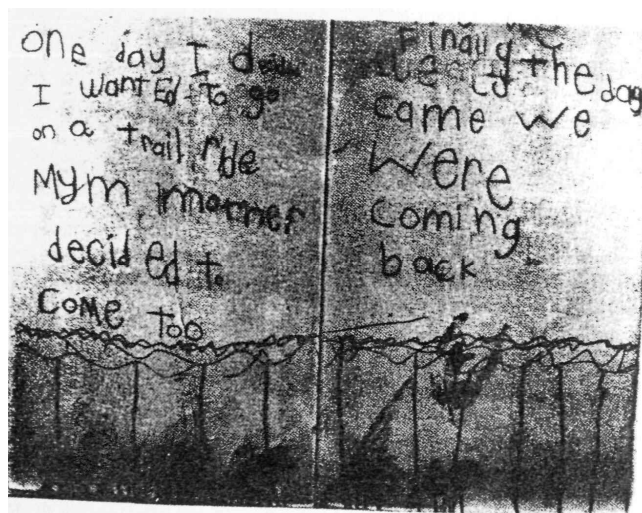 one day I
I wantEd To go
on a trail ride
My mother
decided to
come Too
Finally
the day
came we
were
coming
back